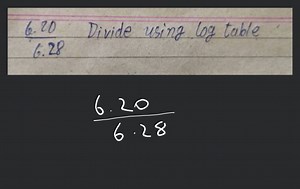 6.20 Divide using log table
6.28
6.20
6.28